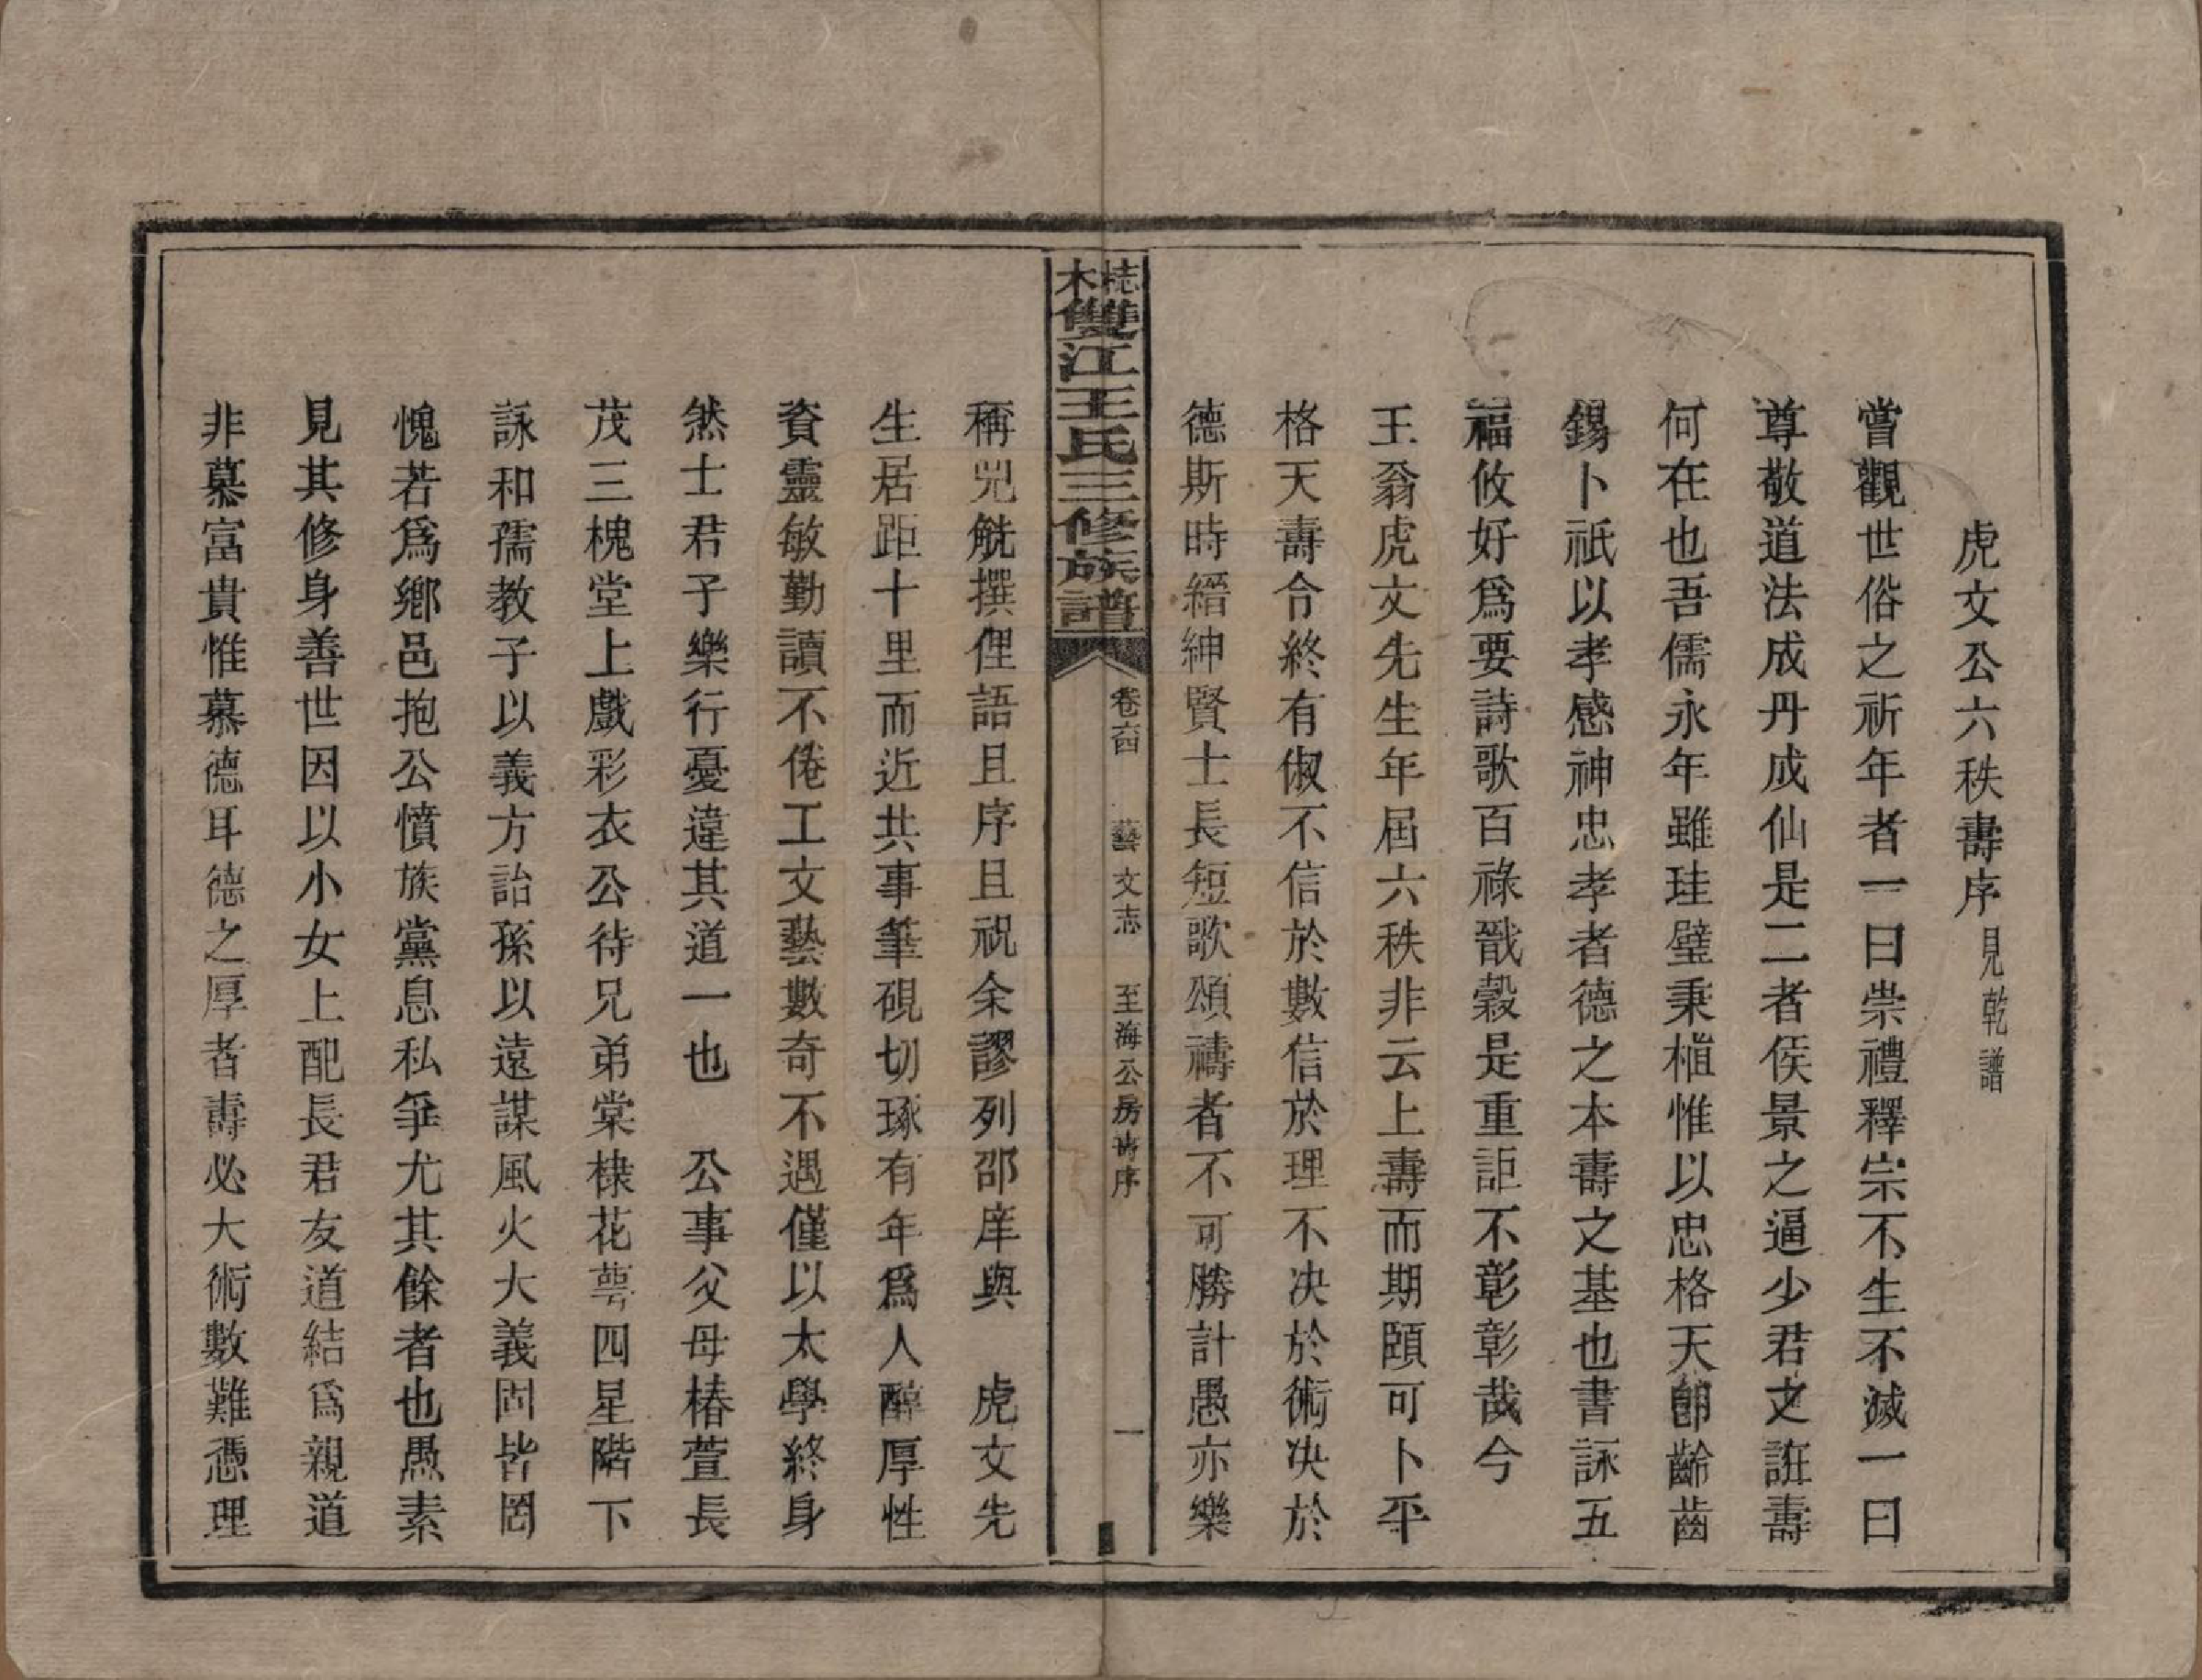 虎文公六秩壽序見乾譜
嘗觀世俗之祈年者一曰崇禮釋宗不生不滅一曰
尊敬道法成丹成仙是二者侯景之逼少君之誑壽
何在也吾儒永年雖珪璧秉植惟以忠格天卽齡齒
錫卜祇以孝感神忠孝者德之本壽之基也書詠五
福攸好爲要詩歌百祿戩穀是重詎不彰彰哉今
王翁虎文先生年屆六秩非云上壽而期頤可卜平
格天壽令終有俶不信於數信於理不決於術決於
德斯時縉紳賢士長短歌頌禱者不可勝計愚亦樂
梽木雙江王氏三修族譜
卷六四 藝文志 至海公房壽序 一
稱兕觥撰俚語且序且祝余謬列邵庠與 虎文先
生居距十里而近共事筆硯切琢有年爲人醇厚性
資靈敏勤讀不倦工文藝數奇不遇僅以太學終身
然士君子樂行憂違其道一也 公事父母椿萱長
茂三槐堂上戲彩衣公待兄弟棠棣花萼四星階下
詠和孺教子以義方詒孫以遠謀風火大義固皆罔
愧若爲鄉邑抱公憤族黨息私爭尤其餘者也愚素
見其修身善世因以小女上配長君友道結爲親道
非慕富貴惟慕德耳德之厚者壽必大術數難憑理